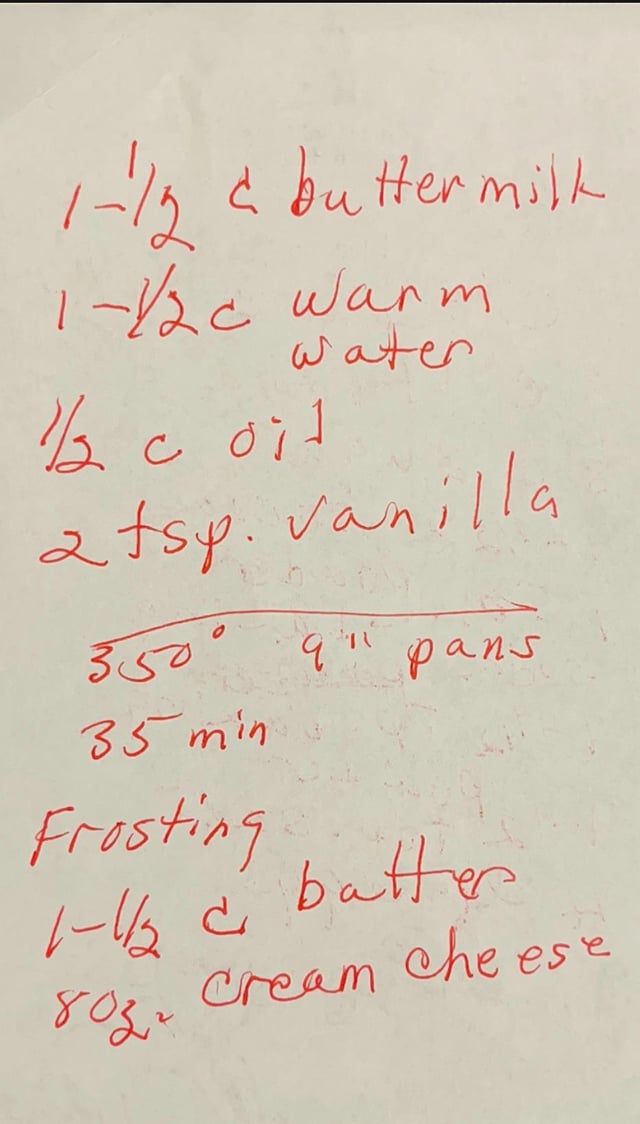 1-1/2 c buttermilk
1-1/2 c warm
water
1/2 c oil
2 tsp. vanilla
350° 9" pans
35 min
Frosting
1-1/2 c butter
8oz. cream cheese